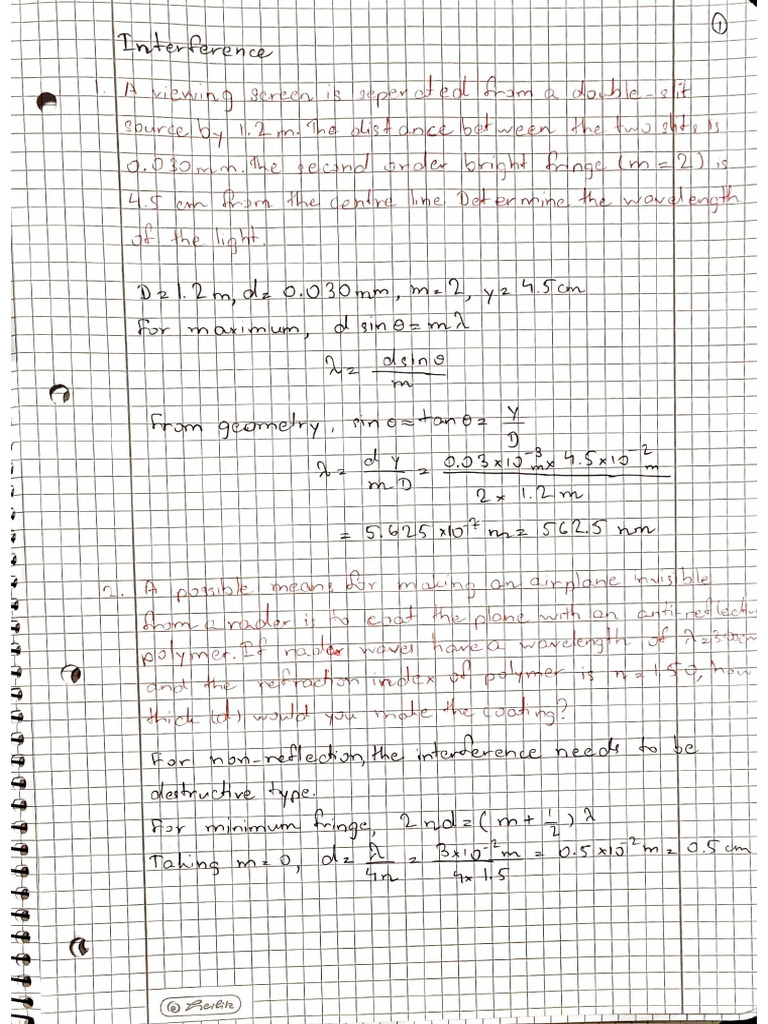 ①
Interference
1. A viewing screen is seperated from a double-slit
source by 1.2 m. The distance between the two slits is
0.030 mm. The second order bright fringe (m = 2) is
4.5 cm from the centre line Determine the wavelength
of the light.
D = 1.2 m, d = 0.030 mm, m = 2, y = 4.5 cm
For maximum, d sin θ = mλ
λ = d sin θ / m
From geometry, sin θ ≈ tan θ = y / D
λ = d y / m D = 0.03 × 10⁻³ m × 4.5 × 10⁻² m / 2 × 1.2 m
= 5.625 × 10⁻⁷ m = 562.5 nm
2. A possible means for making an airplane invisible
from a radar is to coat the plane with an anti-reflective
polymer. If radar waves have a wavelength of λ = 3.00 cm
and the refraction index of polymer is n = 1.50, how
thick (d) would you make the coating?
For non-reflection, the interference needs to be
destructive type.
For minimum fringe, 2nd = (m + 1/2) λ
Taking m = 0, d = λ / 4n = 3 × 10⁻² m / 4 × 1.5 = 0.5 × 10⁻² m = 0.5 cm